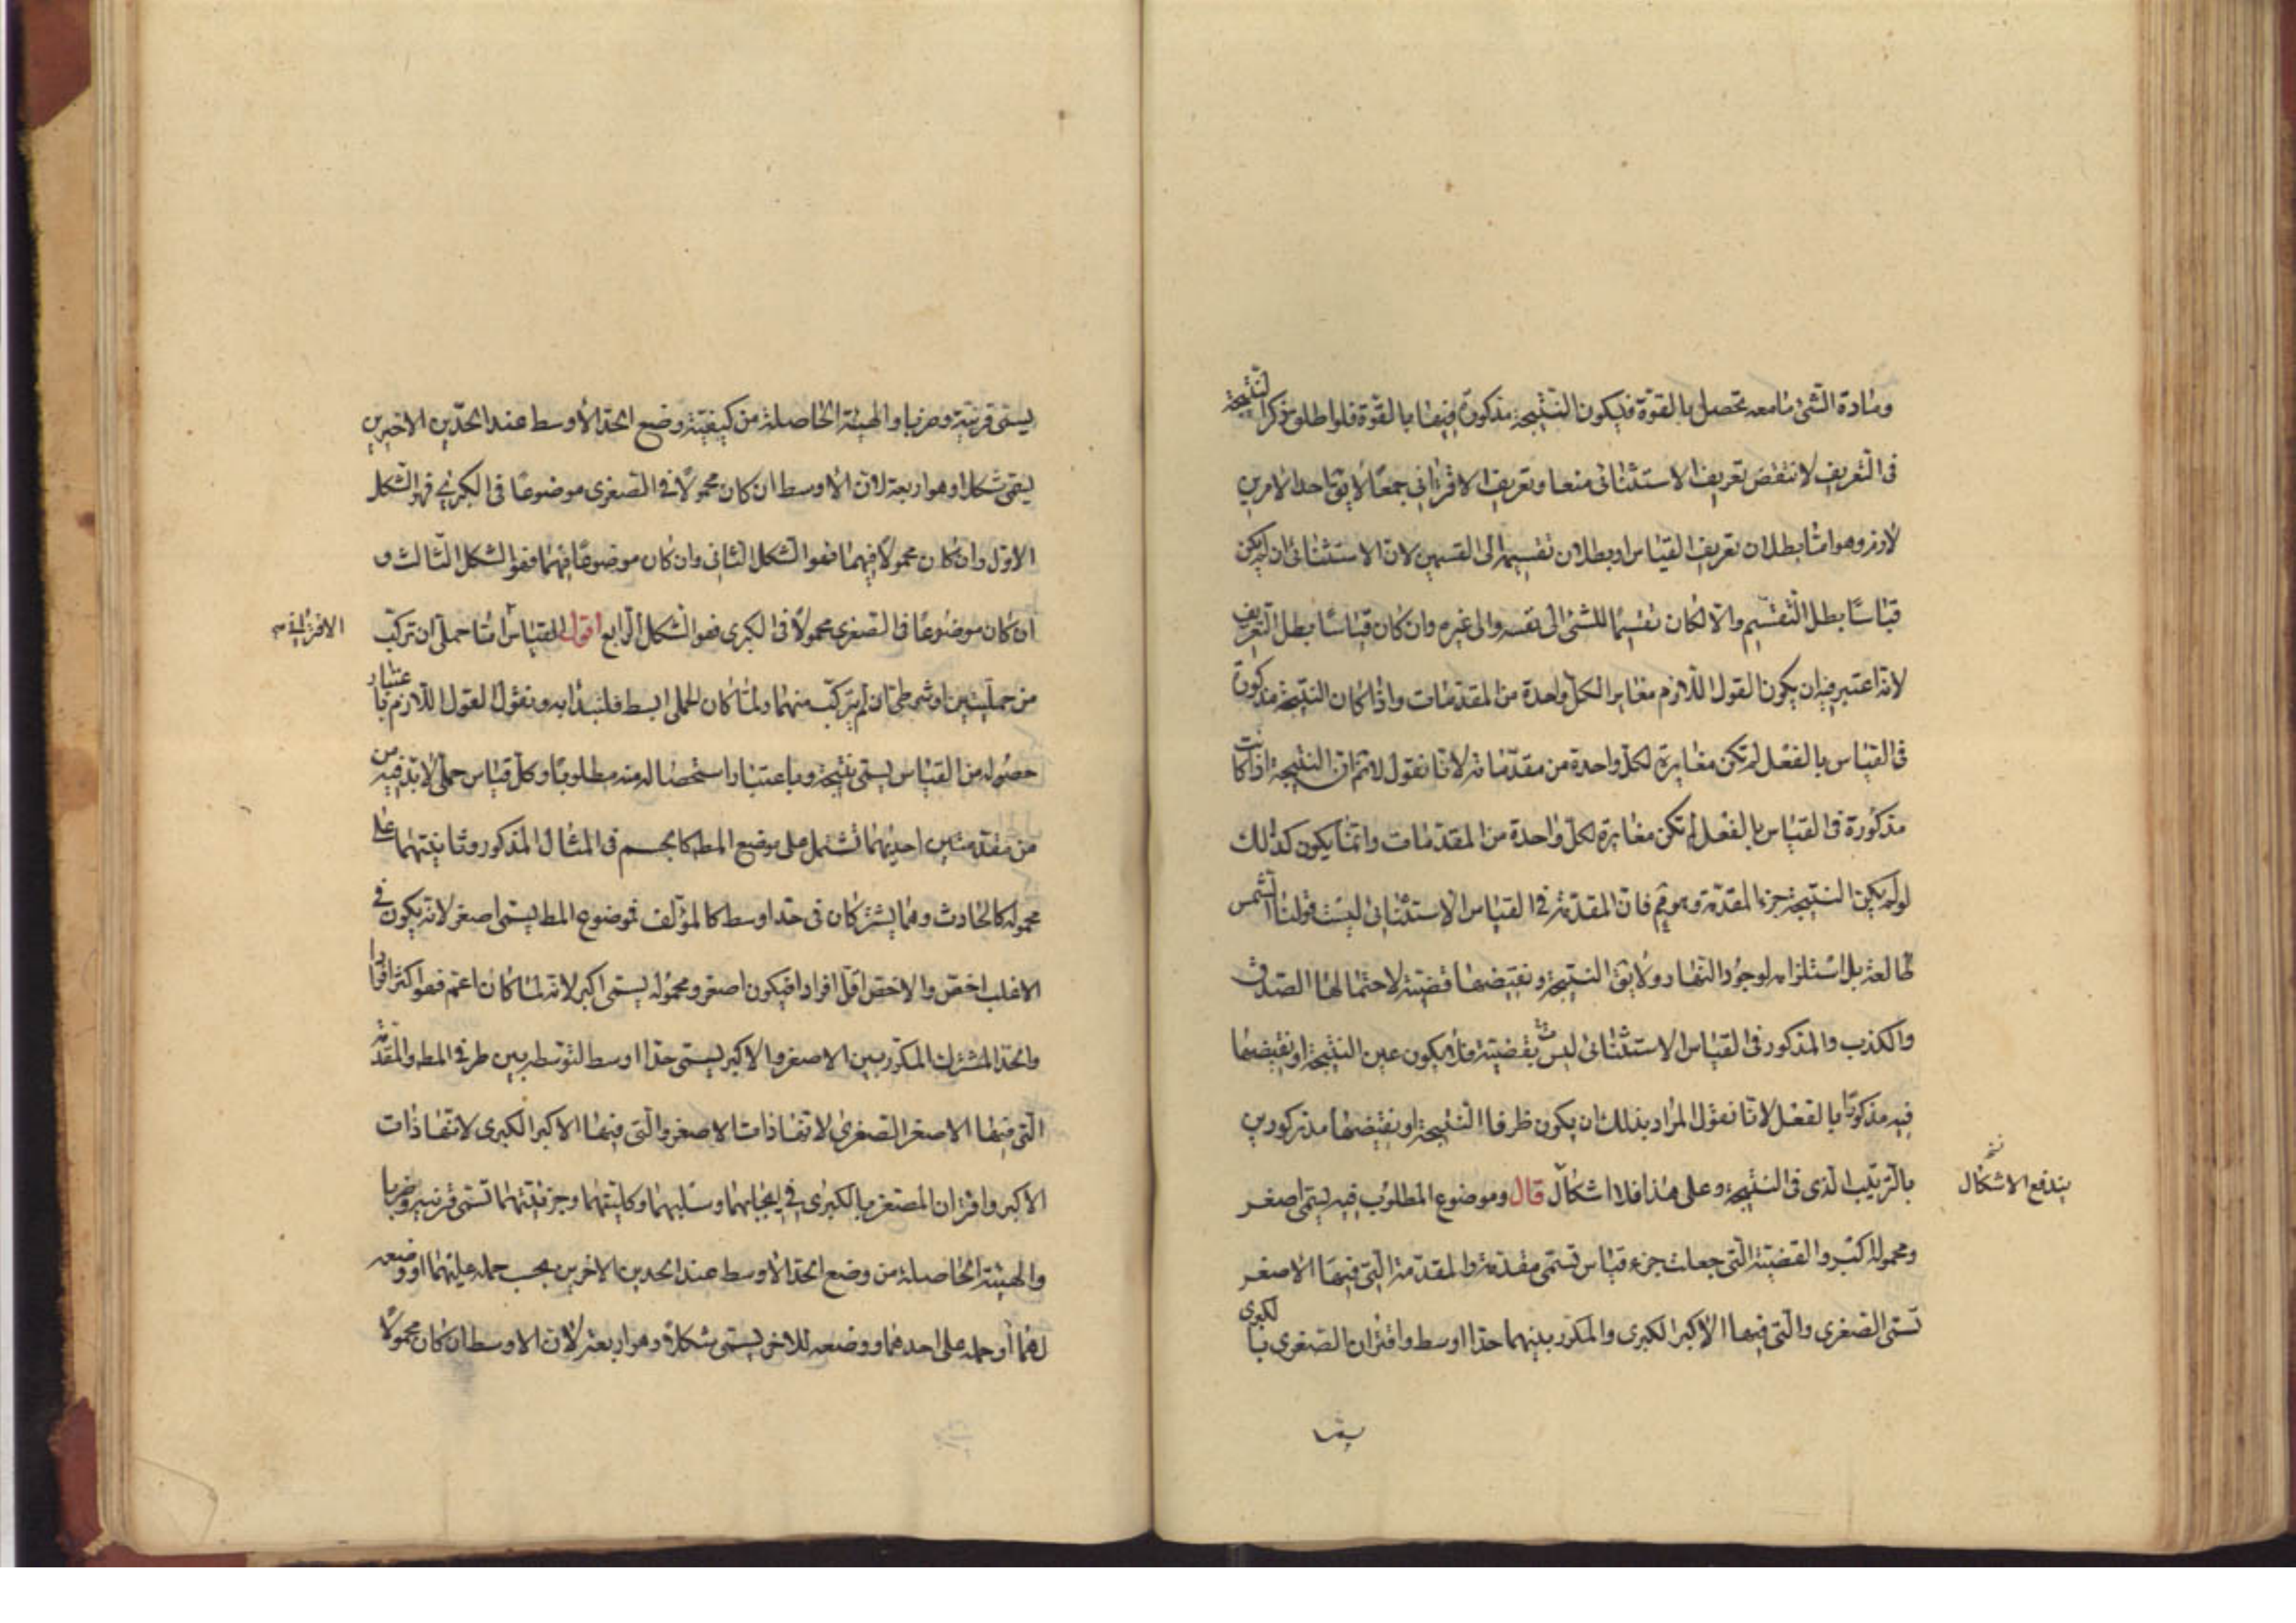 ومادة الشئ ما معه تحصل بالقوة فيكون النتيجة مذكورة فيها بالقوة فلو اطلق ذكر النتيجة
فى التعريف لانتقض تعريف الاستثنائى منعا وتعريف الاقترانى جمعًا لا يق احد الامرين
لازم وهو اما بطلان تعريف القياس او بطلان تقسيمه الى القسمين لان الاستثنائى ان لم يكن
قياسًا بطل التقسيم والا لكان تقسيمًا للشئ الى نفسه والى غيره وان كان قياسًا بطل التعريف
لانه اعتبر فيه ان يكون القول اللازم مغايرا لكل واحدة من المقدمات واذا كان النتيجة مذكورة
فى القياس بالفعل لم تكن مغايرة لكل واحدة من مقدماته لانا نقول لا نم ان النتيجة اذا كانت
مذكورة فى القياس بالفعل لم تكن مغايرة لكل واحدة من المقدمات وانما يكون كذلك
لو لم يكن النتيجة جزء المقدمة وهو مم فان المقدمة فى القياس الاستثنائى ليست قولنا الشمس
طالعة بل استلزامه لوجود النهار ولا يق النتيجة ونقيضها قضية لاحتمالها الصدق
والكذب والمذكور فى القياس الاستثنائى ليست بقضية فلا يكون عين النتيجة او نقيضها
فيه مذكورًا بالفعل لانا نقول المراد بذلك ان يكون طرفا النتيجة او نقيضها مذكورين
بالترتيب الذى فى النتيجة وعلى هذا فلا اشكال قال وموضوع المطلوب فيه يسمى اصغر
يندفع الاشكال
ومحموله اكبر والقضية التى جعلت جزء قياس تسمى مقدمة والمقدمة التى فيها الاصغر
تسمى الصغرى والتى فيها الاكبر الكبرى والمكرر بينهما حدا اوسط واقتران الصغرى بالكبرى
يسمى
يسمى قرينة وضربا والهيئة الحاصلة من كيفية وضع الحد الأوسط عند الحدين الاخيرين
يسمى شكلا وهو اربعة لان الاوسط ان كان محمولًا فى الصغرى موضوعًا فى الكبرى فهو الشكل
الاول وان كان محمولًا فيهما فهو الشكل الثانى وان كان موضوعًا فيهما فهو الشكل الثالث و
ان كان موضوعًا فى الصغرى محمولًا فى الكبرى فهو الشكل الرابع اقول القياس اما حملى ان تركب
من حمليتين او شرطى ان لم يتركب منهما ولما كان الحملى ابسط فلنبدأ به ونقول القول اللازم باعتبار
حصوله من القياس يسمى نتيجة وباعتبار استحصاله منه مطلوبًا وكل قياس حملى لا بد فيه من
من مقدمتين احديهما تشتمل على موضع المط كالجسم فى المثال المذكور وثانيتهما على
محموله كالحادث وهما يشتركان فى حد اوسط كالمؤلف فموضوع المط يسمى اصغر لانه يكون فى
الاغلب اخص والاخص اقل افرادا فيكون اصغر ومحموله يسمى اكبر لانه لما كان اعم فهو اكثر افرادا
والحد المشترك المكرر بين الاصغر والاكبر يسمى حدا اوسط لتوسطه بين طرفى المط والمقدمة
التى فيها الاصغر الصغرى لانها ذات الاصغر والتى فيها الاكبر الكبرى لانها ذات
الاكبر واقتران الصغرى بالكبرى فى ايجابهما وسلبهما وكليتهما وجزئيتهما تسمى قرينة وضربا
والهيئة الحاصلة من وضع الحد الاوسط عند الحدين الاخرين بحسب حمله عليهما او وضعه
لهما او حمله على احدهما ووضعه للاخر يسمى شكلا وهو اربعة لان الاوسط ان كان محمولًا